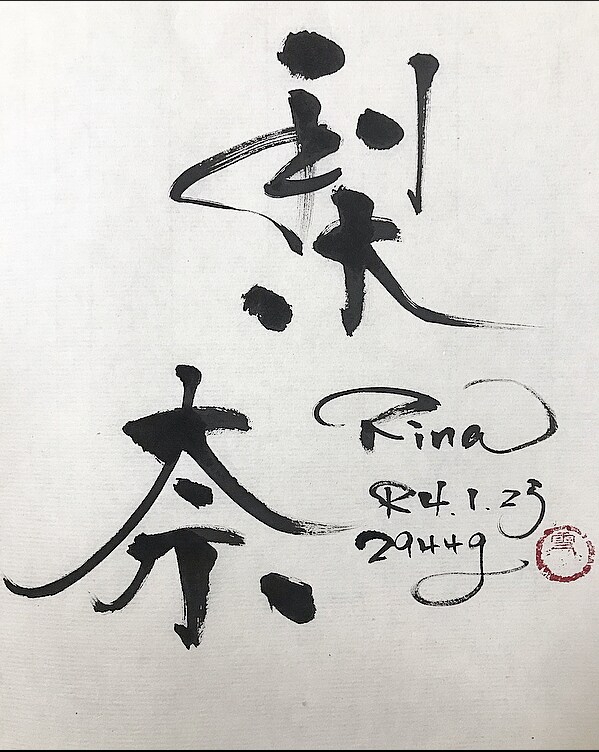 梨
奈
Rina
R4.1.23
2944g